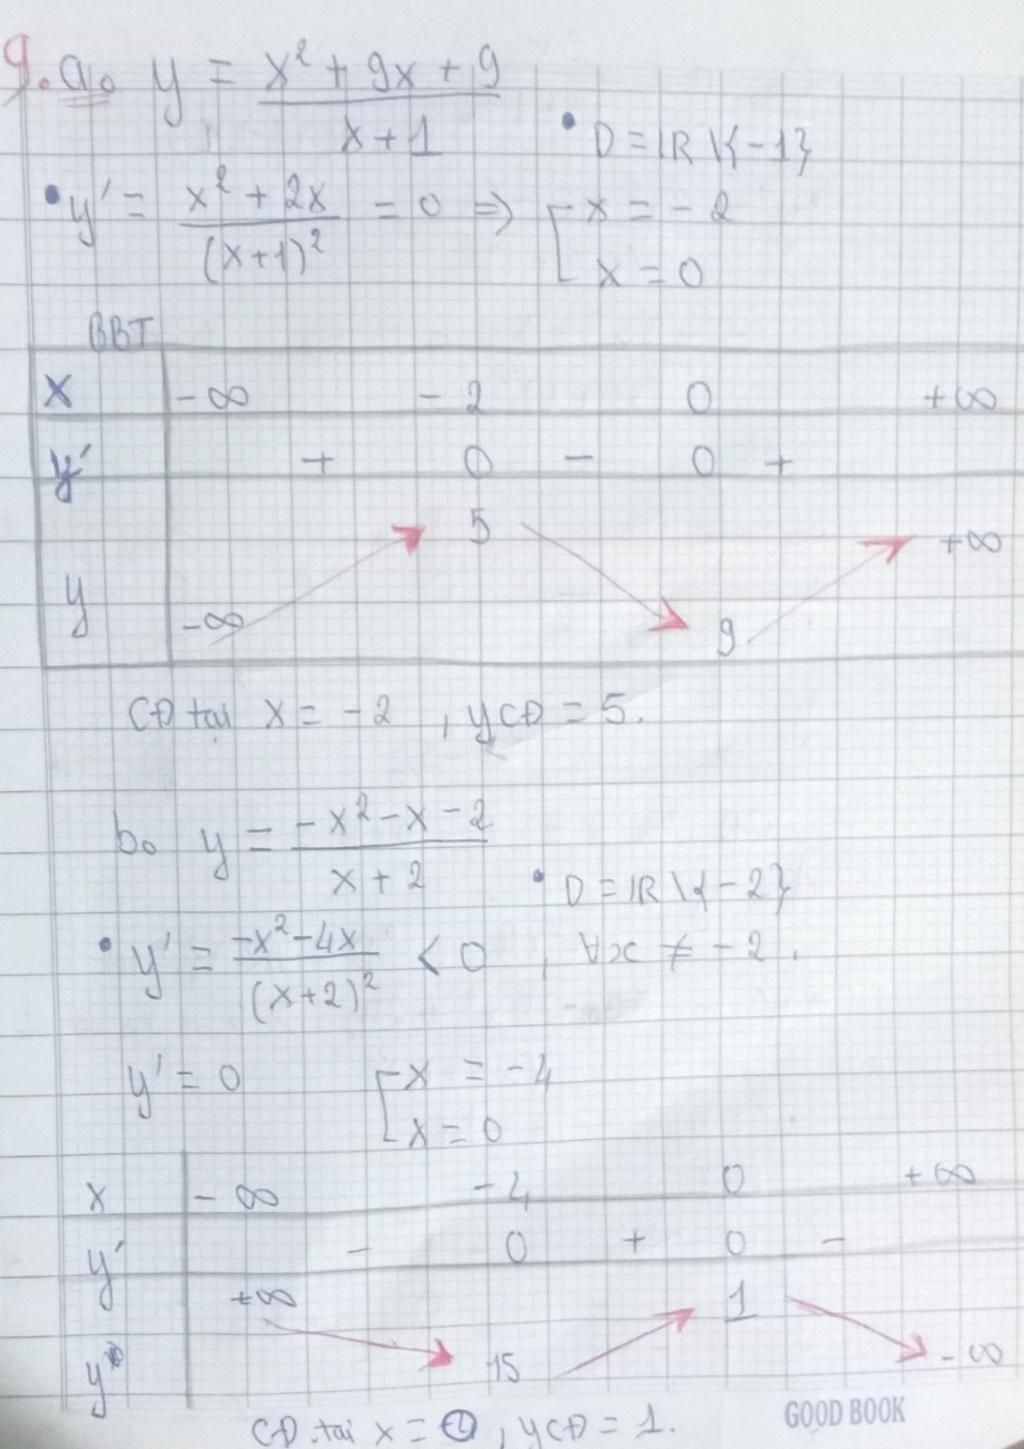 9. a. y = (x² + 9x + 9)/(x + 1)
• D = ℝ \ {-1}
• y' = (x² + 2x)/(x+1)² = 0 ⇒ [ x = -2
x = 0
BBT
x -∞ -2 0 +∞
y' + 0 - 0 +
y -∞ 5 9 +∞
CĐ tại x = -2 , yCĐ = 5.
b. y = (-x² - x - 2)/(x + 2)
• D = ℝ \ {-2}
• y' = (-x² - 4x)/(x+2)² < 0 , ∀x ≠ -2 .
y' = 0 [ x = -4
x = 0
x -∞ -4 0 +∞
y' - 0 + 0 -
y +∞ 15 1 -∞
CĐ tại x = , yCĐ = 1.
GOOD BOOK